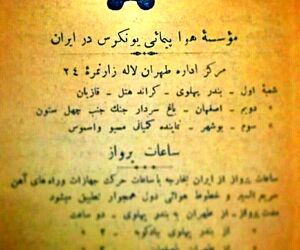 مؤسسهٔ هوا پیمائی یونکرس در ایران
مرکز اداره طهران لاله زار نمرهٔ ۲۴
شعبهٔ اول ـ بندر پهلوی ـ کراند هتل ـ قازیان
» دویم ـ اصفهان ـ باغ سردار جنك جنب چهل ستون
» سوم ـ بوشهر ـ نماینده کمپانی مسیو واسموس
ساعات پرواز
ساعات پرواز از ایران بخارجه با ساعات حرکت جهازات و راه های آهن
سریع السیر و خطوط هوائی دول همجوار تطبیق میشود
مدت پرواز ـ از طهران به بندر پهلوی ـ دو ساعت
» » » بندر پهلوی ببادکوبه ـ ۲ »